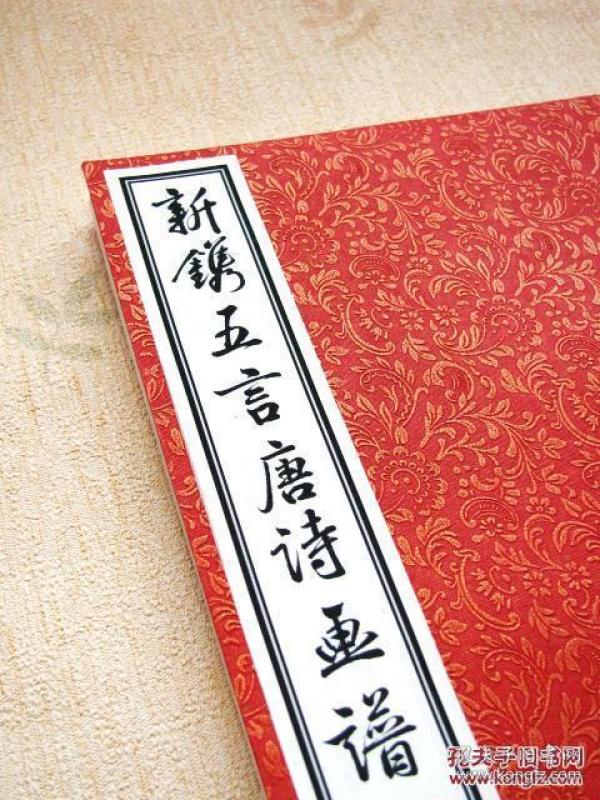 新鐫五言唐诗画譜
孔夫子旧书网
www.kongfz.com